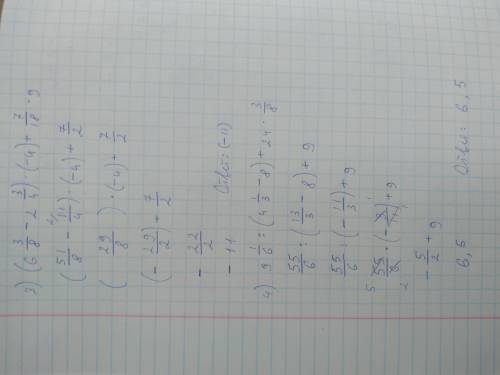 3) (6 3/8 - 2 3/4) · (-4) + 7/18 · 9
(51/8 - 11/4) · (-4) + 7/2
( 29/8 ) · (-4) + 7/2
(- 29/2) + 7/2
- 22/2
- 11 Ответ: (-11)
4) 9 1/6 : (4 1/3 - 8) + 24 · 3/8
55/6 : (13/3 - 8) + 9
55/6 : (- 11/3) + 9
55/6 · (- 3/11) + 9
- 5/2 + 9
6,5 Ответ: 6,5